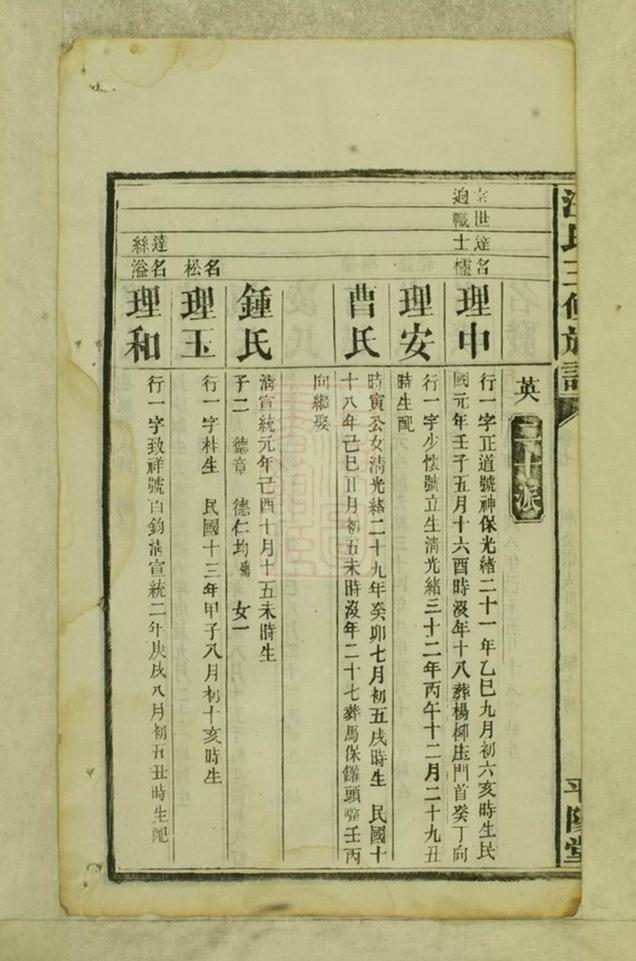 汪氏三修族譜
平陽堂
英 二十派
宗世達名
迥幟士儒
理中
行一字正道號神保光緒二十一年乙巳九月初六亥時生民
國元年壬子五月十六酉時沒年十八葬楊柳垅門首癸丁向
理安
行一字少懷號立生清光緒三十二年丙午十二月二十九丑
時生配
曹氏
時寅公女清光緒二十九年癸卯七月初五戌時生 民國十
十八年己巳正月初五未時沒年二十七葬馬保鑵頭壬丙
向繼娶
鍾氏
清宣統元年己酉十月十五未時生
子二 德章 德仁均殤 女一
名松
理玉
行一字桂生 民國十三年甲子八月初十亥時生
達名
絲溢
理和
行一字致祥號百鈞清宣統二年庚戌八月初五丑時生配